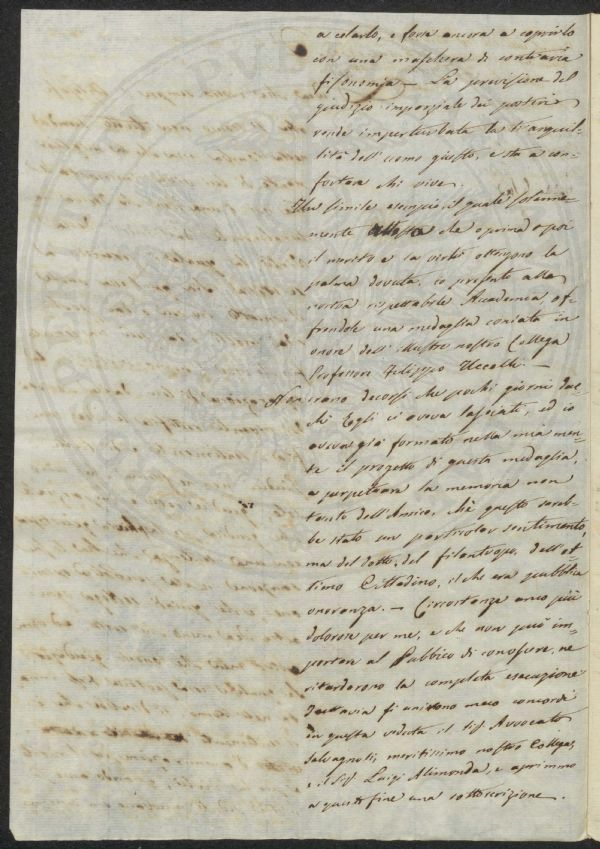 a celarlo, e forse ancora a coprirlo
con una maschera di contraria
fisonomia — La previsione del
giudizio imparziale dei posteri
rende imperturbata la tranquil-
lità dell'uomo giusto, e sta a con-
fortare chi vive.
Un simile esempio, il quale solenne-
mente attesta che o prima o poi
il merito e la virtù ottengono la
palma dovuta, io presento alla
vostra rispettabile Accademia of-
frendole una medaglia coniata in
onore dell'illustre nostro Collega
Professore Filippo Uccelli. —
Non erano decorsi che pochi giorni dac-
chè Egli ci aveva lasciati, ed io
aveva già formato nella mia men-
te il progetto di questa medaglia,
a perpetuare la memoria non
tanto dell'Amico, chè questo sareb-
be stato un particolar sentimento,
ma del dotto, del filantropo, dell'ot-
timo Cittadino, il che era pubblica
onoranza. — Circostanze anco più
dolorose per me, e che non può im-
portare al Pubblico di conoscere, ne
ritardarono la completa esecuzione
Tuttavia si unirono meco concordi
in questa veduta il Sig Avvocato
Salvagnoli, meritissimo nostro Collega,
e il Sig Luigi Alimonda, e aprimmo
a questo fine una sottoscrizione.